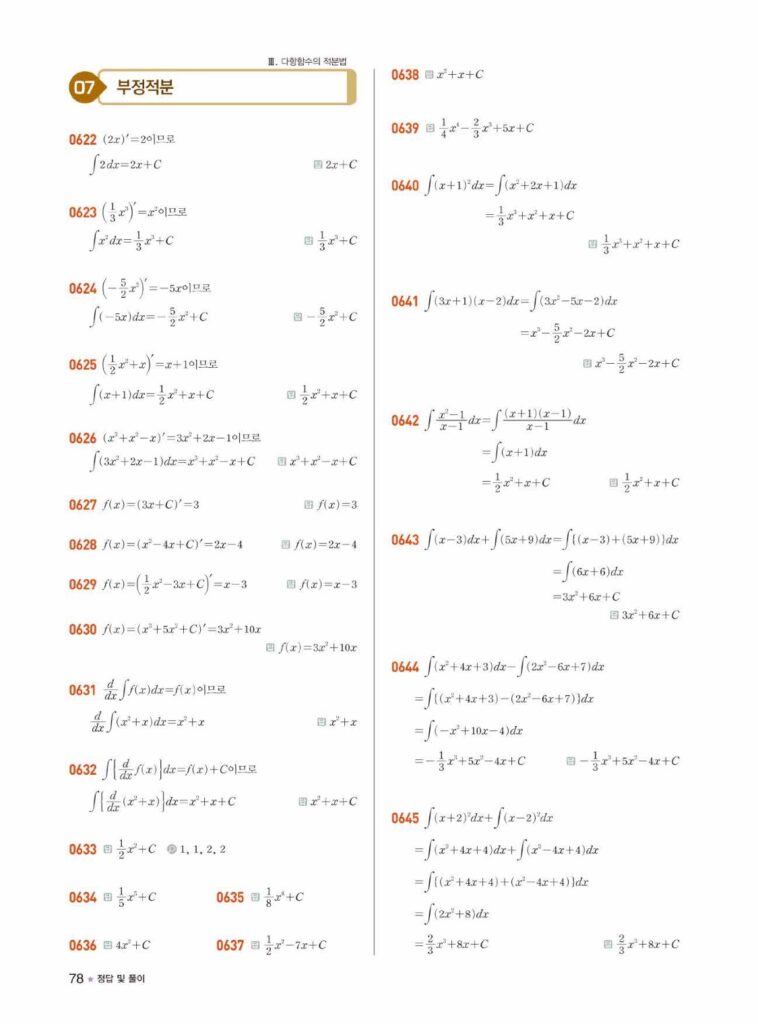 Ⅲ. 다항함수의 적분법
07 부정적분
0622 (2x)′=2이므로
∫2dx=2x+C 답 2x+C
0623 (1/3 x³)′=x²이므로
∫x²dx=1/3 x³+C 답 1/3 x³+C
0624 (-5/2 x²)′=-5x이므로
∫(-5x)dx=-5/2 x²+C 답 -5/2 x²+C
0625 (1/2 x²+x)′=x+1이므로
∫(x+1)dx=1/2 x²+x+C 답 1/2 x²+x+C
0626 (x³+x²-x)′=3x²+2x-1이므로
∫(3x²+2x-1)dx=x³+x²-x+C 답 x³+x²-x+C
0627 f(x)=(3x+C)′=3 답 f(x)=3
0628 f(x)=(x²-4x+C)′=2x-4 답 f(x)=2x-4
0629 f(x)=(1/2 x²-3x+C)′=x-3 답 f(x)=x-3
0630 f(x)=(x³+5x²+C)′=3x²+10x
답 f(x)=3x²+10x
0631 d/dx ∫f(x)dx=f(x)이므로
d/dx ∫(x²+x)dx=x²+x 답 x²+x
0632 ∫{d/dx f(x)}dx=f(x)+C이므로
∫{d/dx (x²+x)}dx=x²+x+C 답 x²+x+C
0633 답 1/2 x²+C 1, 1, 2, 2
0634 답 1/5 x⁵+C 0635 답 1/8 x⁸+C
0636 답 4x²+C 0637 답 1/2 x²-7x+C
78 ★ 정답 및 풀이
0638 답 x²+x+C
0639 답 1/4 x⁴-2/3 x³+5x+C
0640 ∫(x+1)²dx=∫(x²+2x+1)dx
=1/3 x³+x²+x+C
답 1/3 x³+x²+x+C
0641 ∫(3x+1)(x-2)dx=∫(3x²-5x-2)dx
=x³-5/2 x²-2x+C
답 x³-5/2 x²-2x+C
0642 ∫(x²-1)/(x-1) dx=∫(x+1)(x-1)/(x-1) dx
=∫(x+1)dx
=1/2 x²+x+C 답 1/2 x²+x+C
0643 ∫(x-3)dx+∫(5x+9)dx=∫{(x-3)+(5x+9)}dx
=∫(6x+6)dx
=3x²+6x+C
답 3x²+6x+C
0644 ∫(x²+4x+3)dx-∫(2x²-6x+7)dx
=∫{(x²+4x+3)-(2x²-6x+7)}dx
=∫(-x²+10x-4)dx
=-1/3 x³+5x²-4x+C 답 -1/3 x³+5x²-4x+C
0645 ∫(x+2)²dx+∫(x-2)²dx
=∫(x²+4x+4)dx+∫(x²-4x+4)dx
=∫{(x²+4x+4)+(x²-4x+4)}dx
=∫(2x²+8)dx
=2/3 x³+8x+C 답 2/3 x³+8x+C